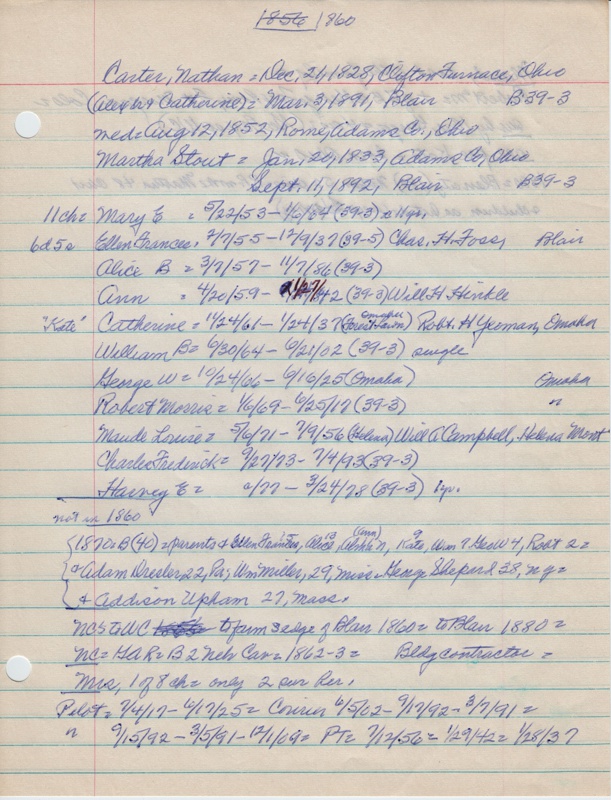 1856 1860
Carter, Nathan = Dec, 21, 1828, Clifton Furnace, Ohio
& Catherine) = Mar. 3, 1891, Blair B39-3
med = Aug 12, 1852, Rome, Adams Co., Ohio
Martha Stout = Jan, 20, 1833, Adams Co, Ohio
Sept. 11, 1892, Blair B39-3
11ch = Mary E = 5/22/53 - (39-3)
6d5s Ellen Frances, 2/7/55 - 12/9/37 (39-5) Chas. H. Foss, Blair
Alice B = 3/7/57 - 11/7/86 (39-3)
Ann = 4/20/59 - 42 (39-3) Will H. Hinkle
"Kate" Catherine = 11/24/61 - 1/24/37 (Omaha Forest Lawn) Robt. H Yeoman, Omaha
William B = 6/30/64 - 6/21/02 (39-3) single
George W = 10/24/66 - 6/16/25 (Omaha) Omaha
Robert Morris = 1/6/69 - 6/25/17 (39-3) "
Maude Louise = 5/6/71 - 7/9/56 (Helena) Will A Campbell, Helena Mont
Charles Fredrick = 9/27/73 - 7/4/93 (39-3)
Harvey E = /77 - 3/24/78 (39-3) 1yr.
not in 1860
1870 = B (40) = parents & Ellen Frances, Alice 13, (Ann), Kate 9, Wm 7 Geo W 4, Robt 2 =
& Adam Dresler, 22, Pa; Wm Miller, 29, Miss. George Sheperd 28, n.y =
& Addison Upham 27, Mass.
NCS to WC to farm 3 edge of Blair 1860 = to Blair 1880 =
NC = GAR = B 2 Neb Cav = 1862-3 = Bldg contractor =
Mrs, 1 of 8 ch = only 2 sur Rev.
Pilot = 7/4/17 - 6/17/25 = Courier 6/5/02 - 9/17/92 - 3/7/91 =
" 9/15/92 - 3/5/91 - 12/1/09 = PT = 7/12/56 = 1/29/42 = 1/28/37